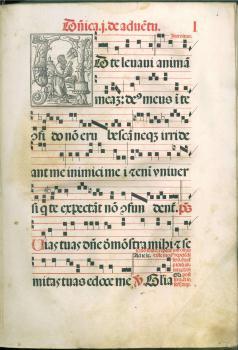 Dñica .j. de adveñtu. I
D te levavi animã
meaz: de⁹ meus i te
ɔfi do nõ eru bescã neqz irride
ant me inimici me i etenĩ univer
si q te expectãt nõ ɔfun dent. ps
Vias tuas dñe demõstra mihi: et se
mitas tuas edoce me V Glia